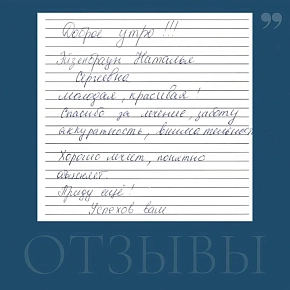 Доброе утро !!!
Айзенбраун Наталья
Сергеевна
молодая, красивая!
Спасибо за лечение, заботу
аккуратность, внимательност
Хорошо лечит, понятно
объясняет.
Приду ещё!
Успехов вам
ОТЗЫВЫ